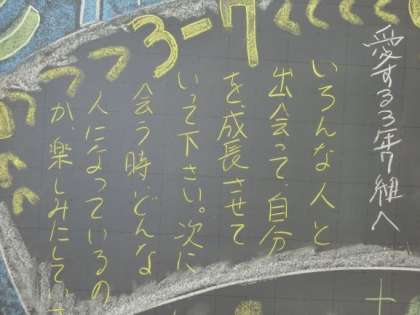 3-7
愛する3年7組へ
いろんな人と
出会って、自分
を、成長させて
いって下さい。次に
会う時、どんな
人になっているの
か、楽しみにして